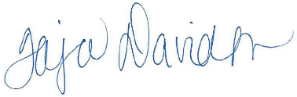 Taja Davidson